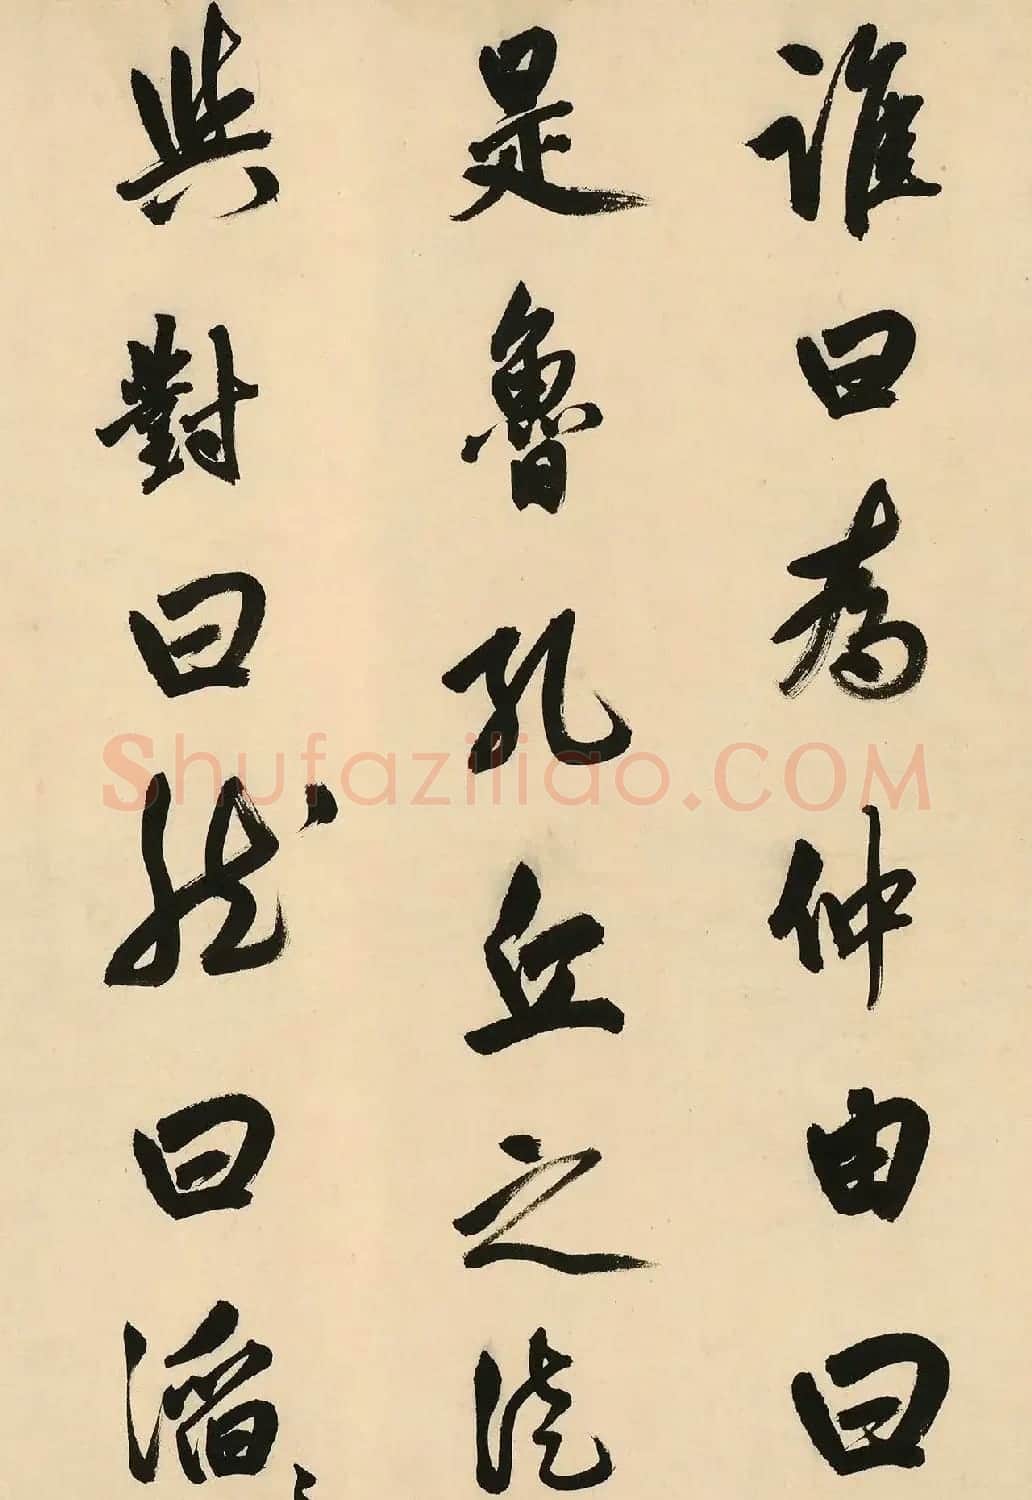 誰曰為仲由曰
是魯孔丘之徒
與對曰然曰滔
Shufaziliao.COM